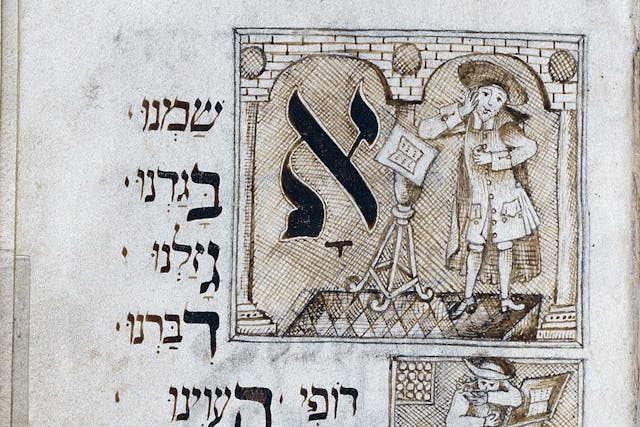 אָשַׁמְנוּ·
בָּגַדְנוּ·
גָּזַלְנוּ·
דִּבַּרְנוּ·
דוֹפִי · הֶעֱוִינוּ·